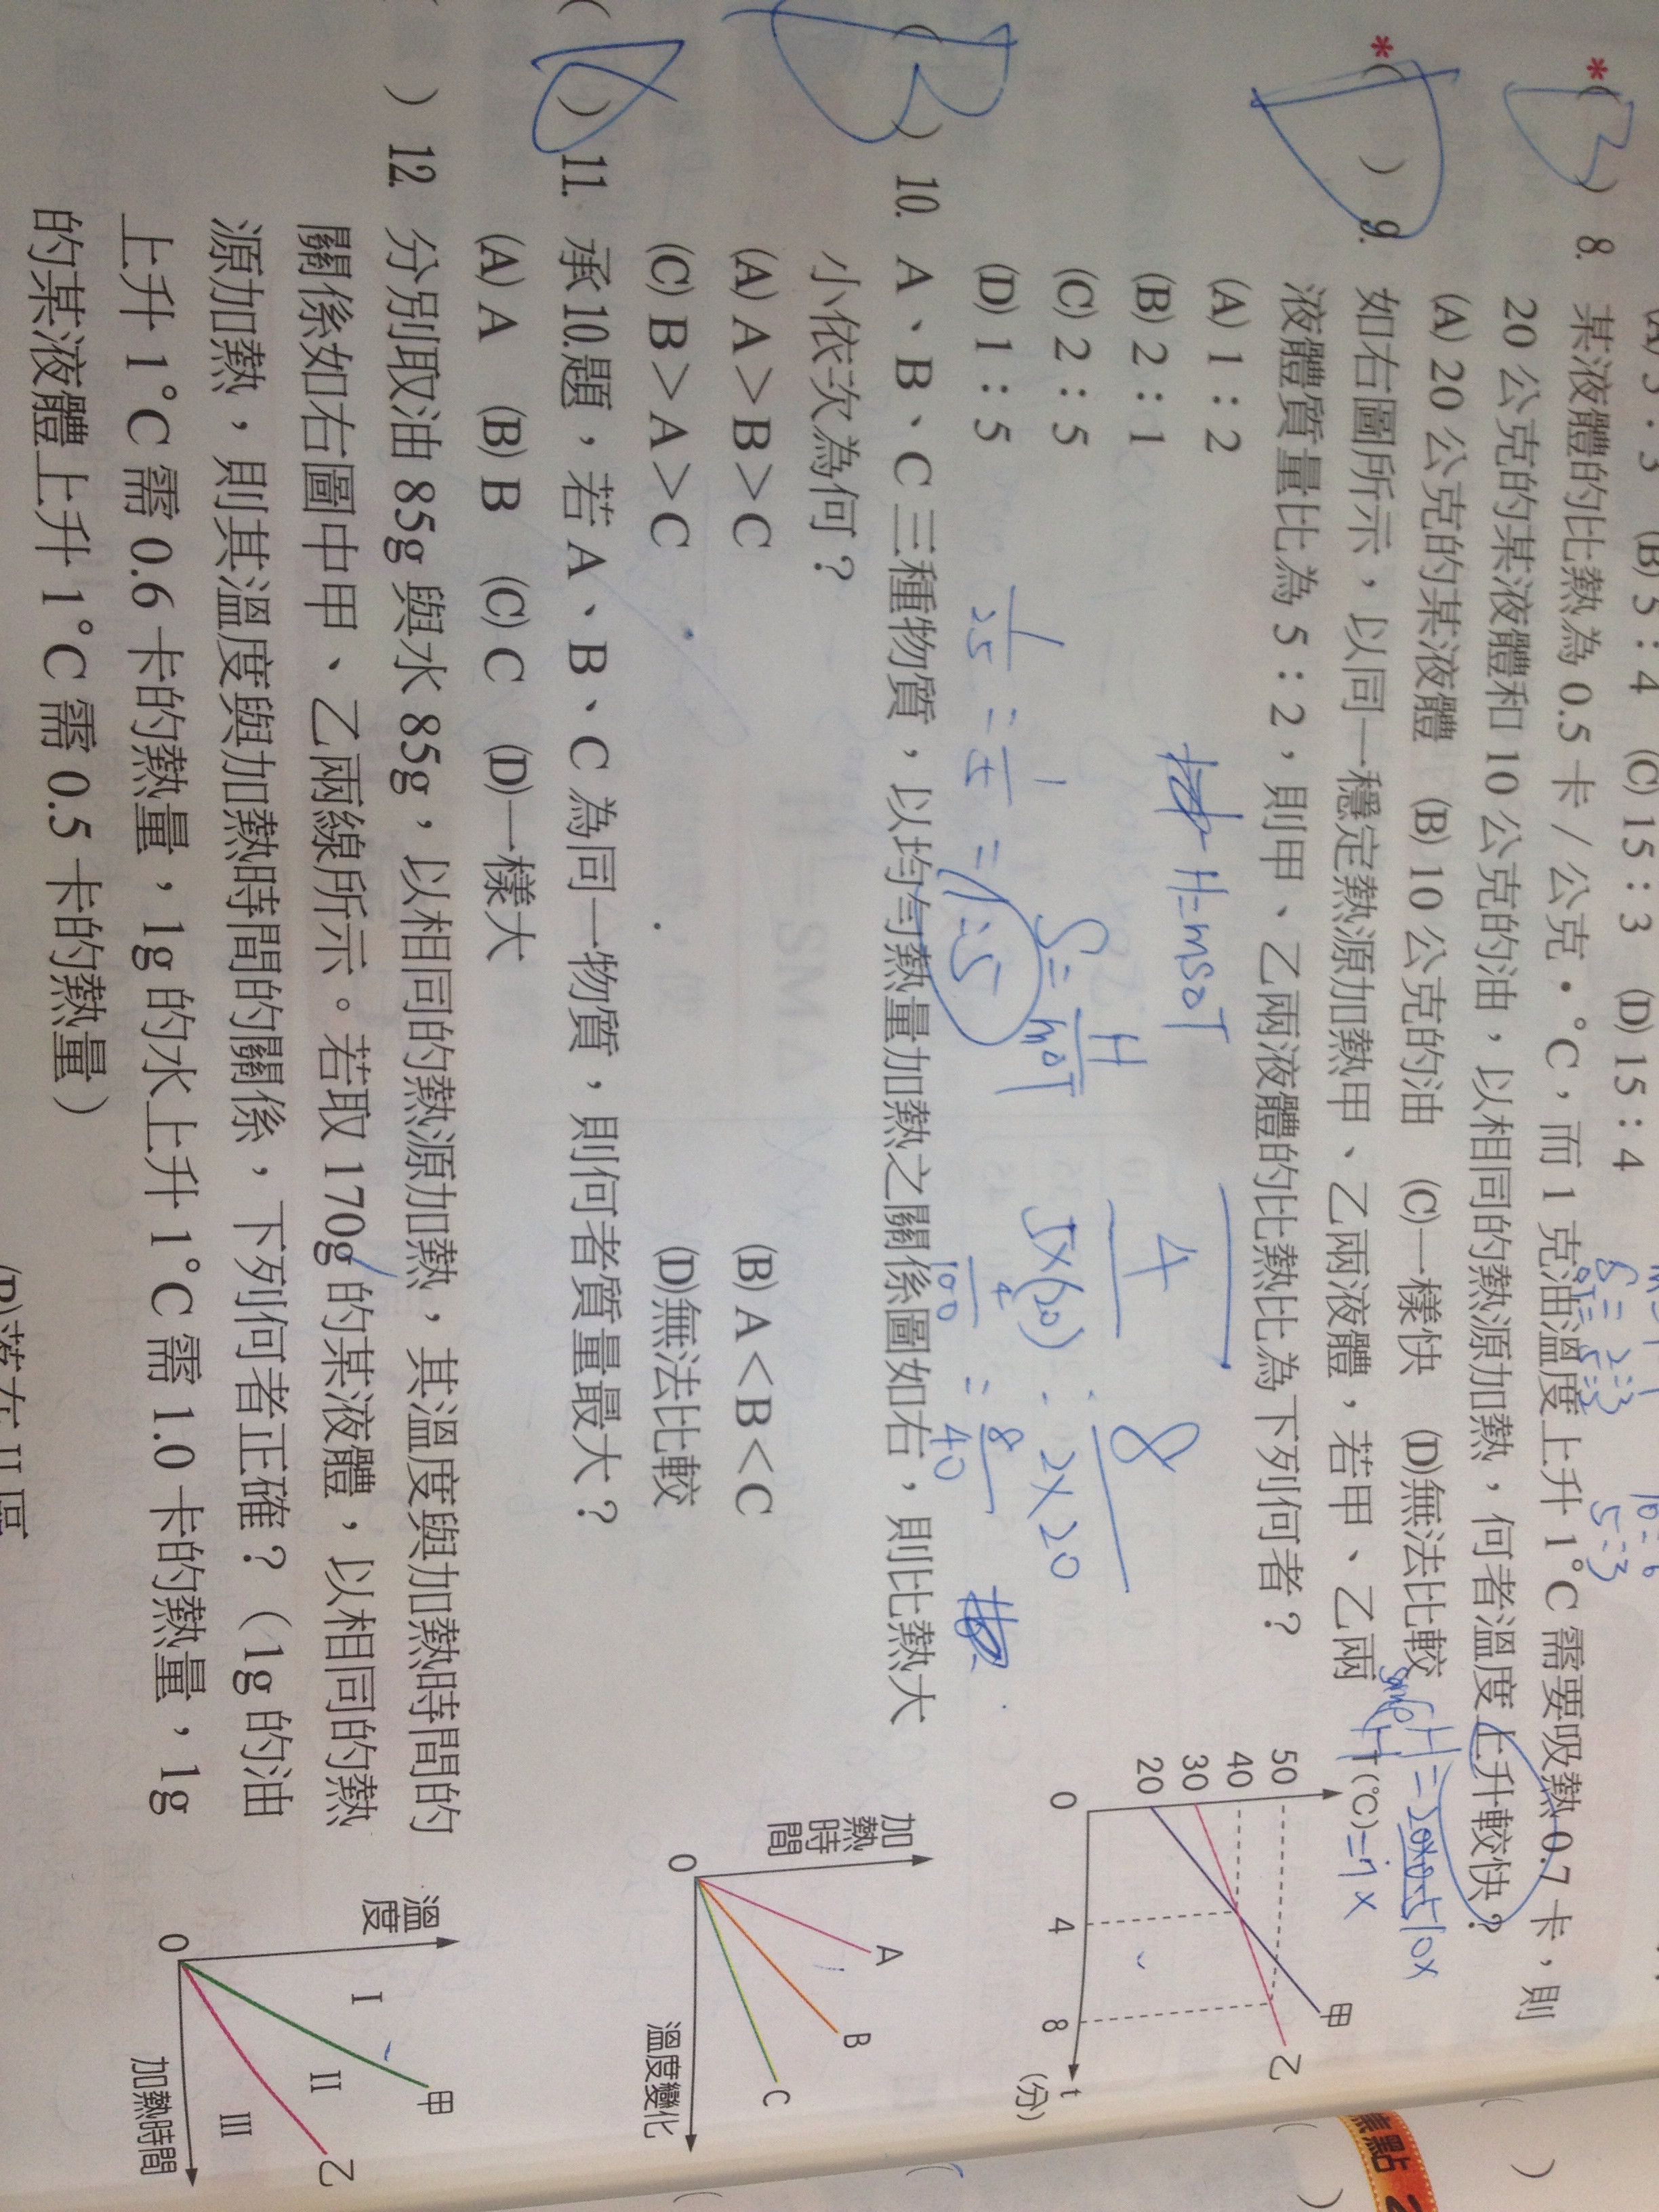 (A) 5：3 (B) 5：4 (C) 15：3 (D) 15：4
*( B ) 8. 某液體的比熱為 0.5 卡／公克·°C，而 1 克油溫度上升 1°C 需要吸熱 0.7 卡，則
20 公克的某液體和 10 公克的油，以相同的熱源加熱，何者溫度上升較快？
(A) 20 公克的某液體 (B) 10 公克的油 (C)一樣快 (D)無法比較
*( D ) 9. 如右圖所示，以同一穩定熱源加熱甲、乙兩液體，若甲、乙兩
液體質量比為 5：2，則甲、乙兩液體的比熱比為下列何者？
(A) 1：2
(B) 2：1
(C) 2：5
(D) 1：5
H=msΔT
S=H/mΔT
4
5×(20)
8
2×20
4/100 = 8/40
1/25 = 1/5 = 1:5
T(°C)
50
40
30
20
0
4
8
t
(分)
甲
乙
( B ) 10. A、B、C 三種物質，以均勻熱量加熱之關係圖如右，則比熱大
小依次為何？
(A) A＞B＞C (B) A＜B＜C
(C) B＞A＞C (D)無法比較
加熱時間
0
A
B
C
溫度變化
( ) 11. 承10.題，若 A、B、C 為同一物質，則何者質量最大？
(A) A (B) B (C) C (D)一樣大
( ) 12. 分別取油 85g 與水 85g，以相同的熱源加熱，其溫度與加熱時間的
關係如右圖中甲、乙兩線所示。若取 170g 的某液體，以相同的熱
源加熱，則其溫度與加熱時間的關係，下列何者正確？（1g 的油
上升 1°C 需 0.6 卡的熱量，1g 的水上升 1°C 需 1.0 卡的熱量，1g
的某液體上升 1°C 需 0.5 卡的熱量）
溫度
0
I
II
III
甲
乙
加熱時間
(B)落在 II 區
焦點 2